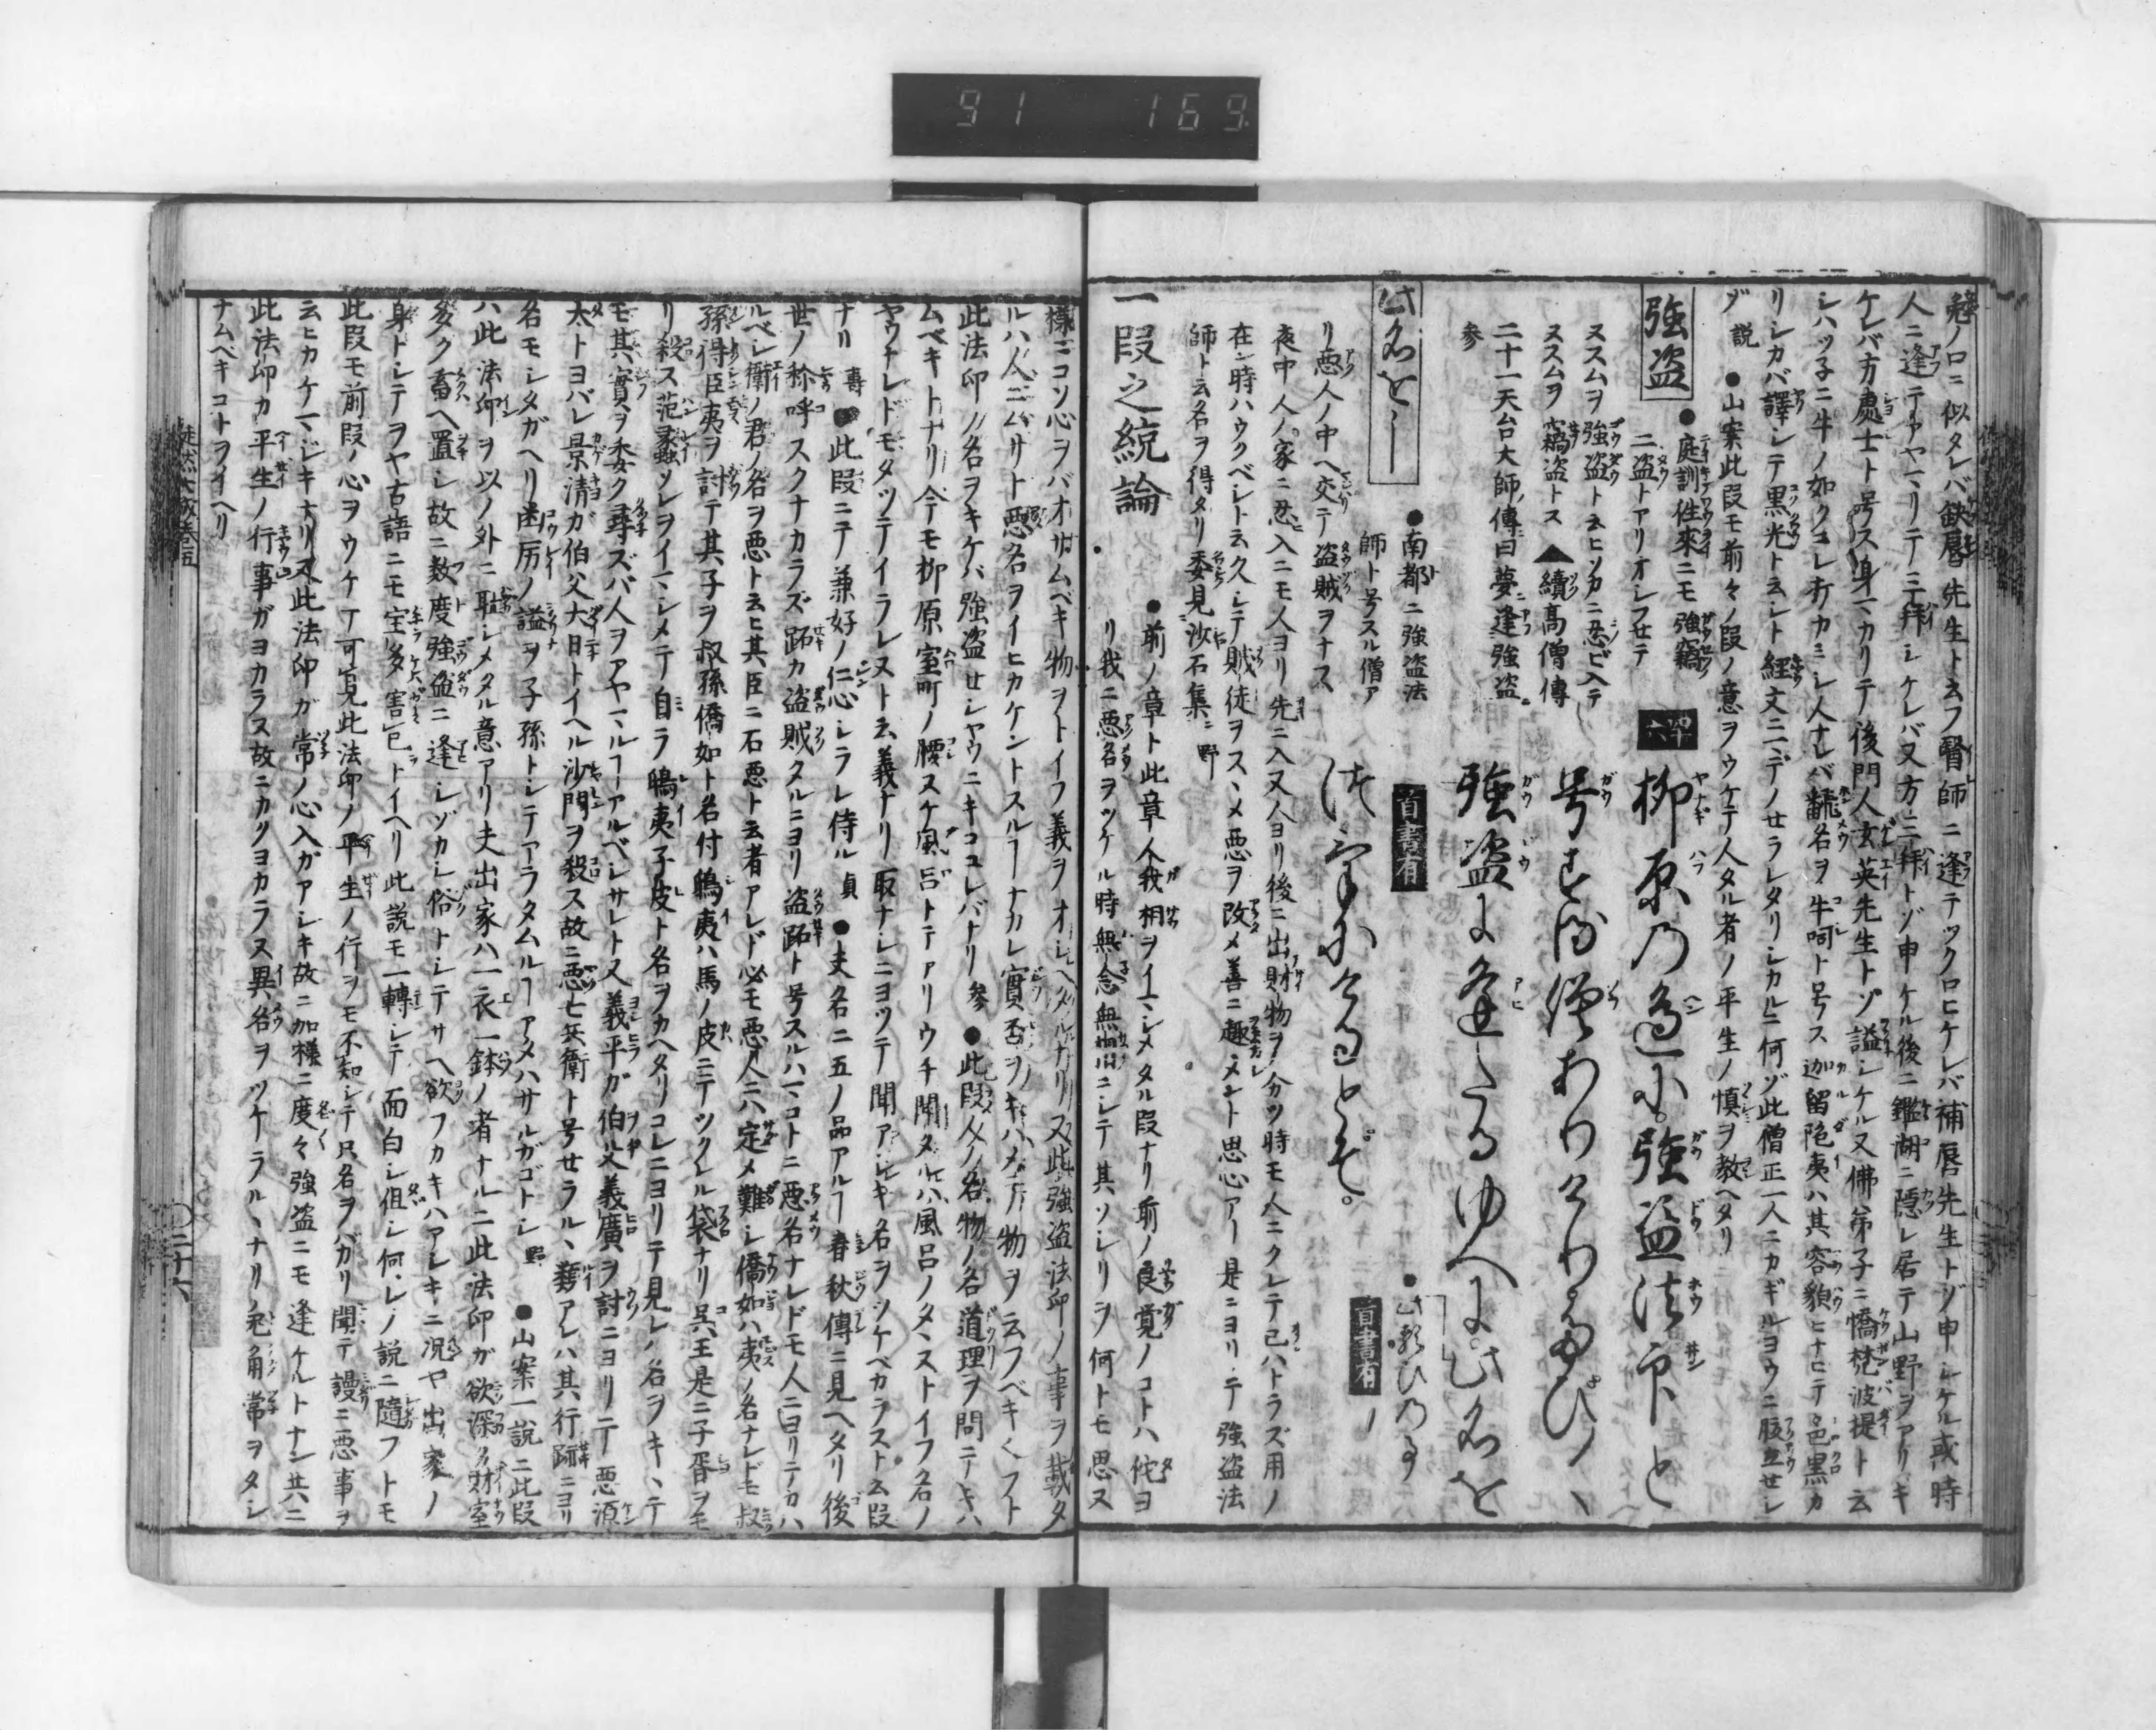 91 169
兎ノ口ニ似タレバ缺唇先生ト云フ醫師ニ逢テツクロヒケレバ補唇先生トゾ申シケル或時
人ニ逢テアヤマリテ三拜シケレバ又方三拜トゾ申ケル後ニ鑑湖ニ隠レ居テ山野ヲアリキ
ケレバ方處士ト号ス身マカリテ後門人玄英先生トゾ謚シケル又佛弟子ニ憍梵波提ト云
シハツ子ニ牛ノ如クコレオカミシ人ナレバ翻名ヲ牛呞ト号ス迦留陁夷ハ其容貌ヒナヒテ色黒カ
リシカバ譯シテ黒光ト云シト經文ニ二デノせラレタリシカルニ何ゾ此僧正一人ニカギルヨウニ腹立せシ
ゾ説 ●山案此段モ前々ノ段ノ意ヲウケテ人タル者ノ平生ノ慎ヲ教ヘタリ
強盗 ●庭訓徃來ニモ強竊
二盗トアリオシフせテ
ヌスムヲ強盗ト云ヒソカニ忍ビ入テ
ヌスムヲ竊盗トス▲續髙僧傳
二十一天台大師傳曰夢逢強盗
参
四十六
柳原乃邊に。強盗法印と
号する僧ありけりたび〳〵
強盗に逢たるゆへに此名を
つけにけるとぞ。
此名を—
●南都ニ強盗法
師ト号スル僧ア
リ惡人ノ中ヘ交テ盗賊ヲナス
首書有
●此類ひの事ハ
首書有
夜中人ノ家ニ忍入ニモ人ヨリ先ニ入又人ヨリ後ニ出財物ヲ分ツ時モ人ニクレテ己ハトラズ用ノ
在ン時ハウクベシト云久シテ賊徒ヲスヽメ惡ヲ改メ善ニ趣メント思心アリ是ニヨリテ強盗法
師ト云名ヲ得タリ委見沙石集ニ 野
一段之統論 ●前ノ章ト此章人我相ヲイマシメタル段ナリ前ノ良覚ノコトハ侘ヨ
リ我ニ惡名ヲツケル時無念無相ニシテ其ソシリヲ何トモ思ヌ
様ニコソ心ヲバオサムベキ物ヲトイフ義ヲオシヘタルナリ又此強盗法印ノ事ヲ載タ
ルハ人ニムサト惡名ヲイヒカケントスルヿナカレ實否ヲキハメテ物ヲ云フベキ〱フト
此法印ノ名ヲキケバ強盗せシヤウニキコユレバナリ 参 ●此段人ノ名物ノ名道理ヲ問ニテキハ
ムベキトナリ今モ柳原室町ノ腰スケ風呂トテアリウチ聞タルハ風呂ノタヽストイフ名ノ
ヤウナレドモタツテイラレヌト云義ナリ取ナシニヨツテ聞アシキ名ヲツケベカラスト云段
ナリ 壽 ●此段ニテ兼好ノ仁心シラレ侍ル 貞 ●夫名ニ五ノ品アルヿ春秋傳ニ見ヘタリ後
世ノ称呼スクナカラズ跖カ盗賊タルニヨリ盗跖ト号スルハマコトニ惡名ナレドモ人ニ曰リテカハ
ルベシ衞ノ君ノ名ヲ惡ト云ヒ其臣ニ石惡ト云者アレド必モ惡人ニハ定メ難シ僑如ハ夷ノ名ナレドモ叔
孫得臣夷ヲ討テ其子ヲ叔孫僑如ト名付鴟夷ハ馬ノ皮ニテツクレル袋ナリ呉王是ニ子胥ヲモ
リ殺ス范蠡ソレヲイマシメテ自ラ鴟夷子皮ト名ヲカヘタリコレニヨリテ見レハ名ヲキヽテ
モ其實ヲ委ク尋ズバ人ヲアヤマルヿアルベシサレト又義平ガ伯父義廣ヲ討ニヨリテ惡源
太トヨバレ景清ガ伯父大日トイヘル沙門ヲ殺ス故ニ惡七兵衛ト号せラルヽ類アレハ其行跡ニヨリ
名モシタガヘリ幽厉ノ謚ヲ子孫トシテアラタムルヿアメハサルガゴトシ 野 ●山案一説ニ此段
ハ此法印ヲ以ノ外ニ耻シメタル意アリ夫出家ハ一衣一鉢ノ者ナルニ此法印ガ欲深ク財寳
多ク畜ヘ置シ故ニ数度強盗ニ逢シゾカシ俗トシテサヘ欲フカキハアシキニ况ヤ出家ノ
身トシテヲヤ古語ニモ宝多害已トイヘリ此説モ一轉シテ面白シ但シ何レノ説ニ隨フトモ
此段モ前段ノ心ヲウケテ可寛此法印ノ平生ノ行ヲモ不知シテ只名ヲバカリ聞テ謾ニ惡事ヲ
云ヒカケマジキナリ又此法印ガ常ノ心入ガアシキ故ニ加様ニ度々強盗ニモ逢ケルトナン共ニ
此法印カ平生ノ行事ガヨカラス故ニカクヨカラヌ異名ヲツケラルヽナリ兎角常ヲタシ
ナムベキコトヲイヘリ
徒然大成巻五
二十六